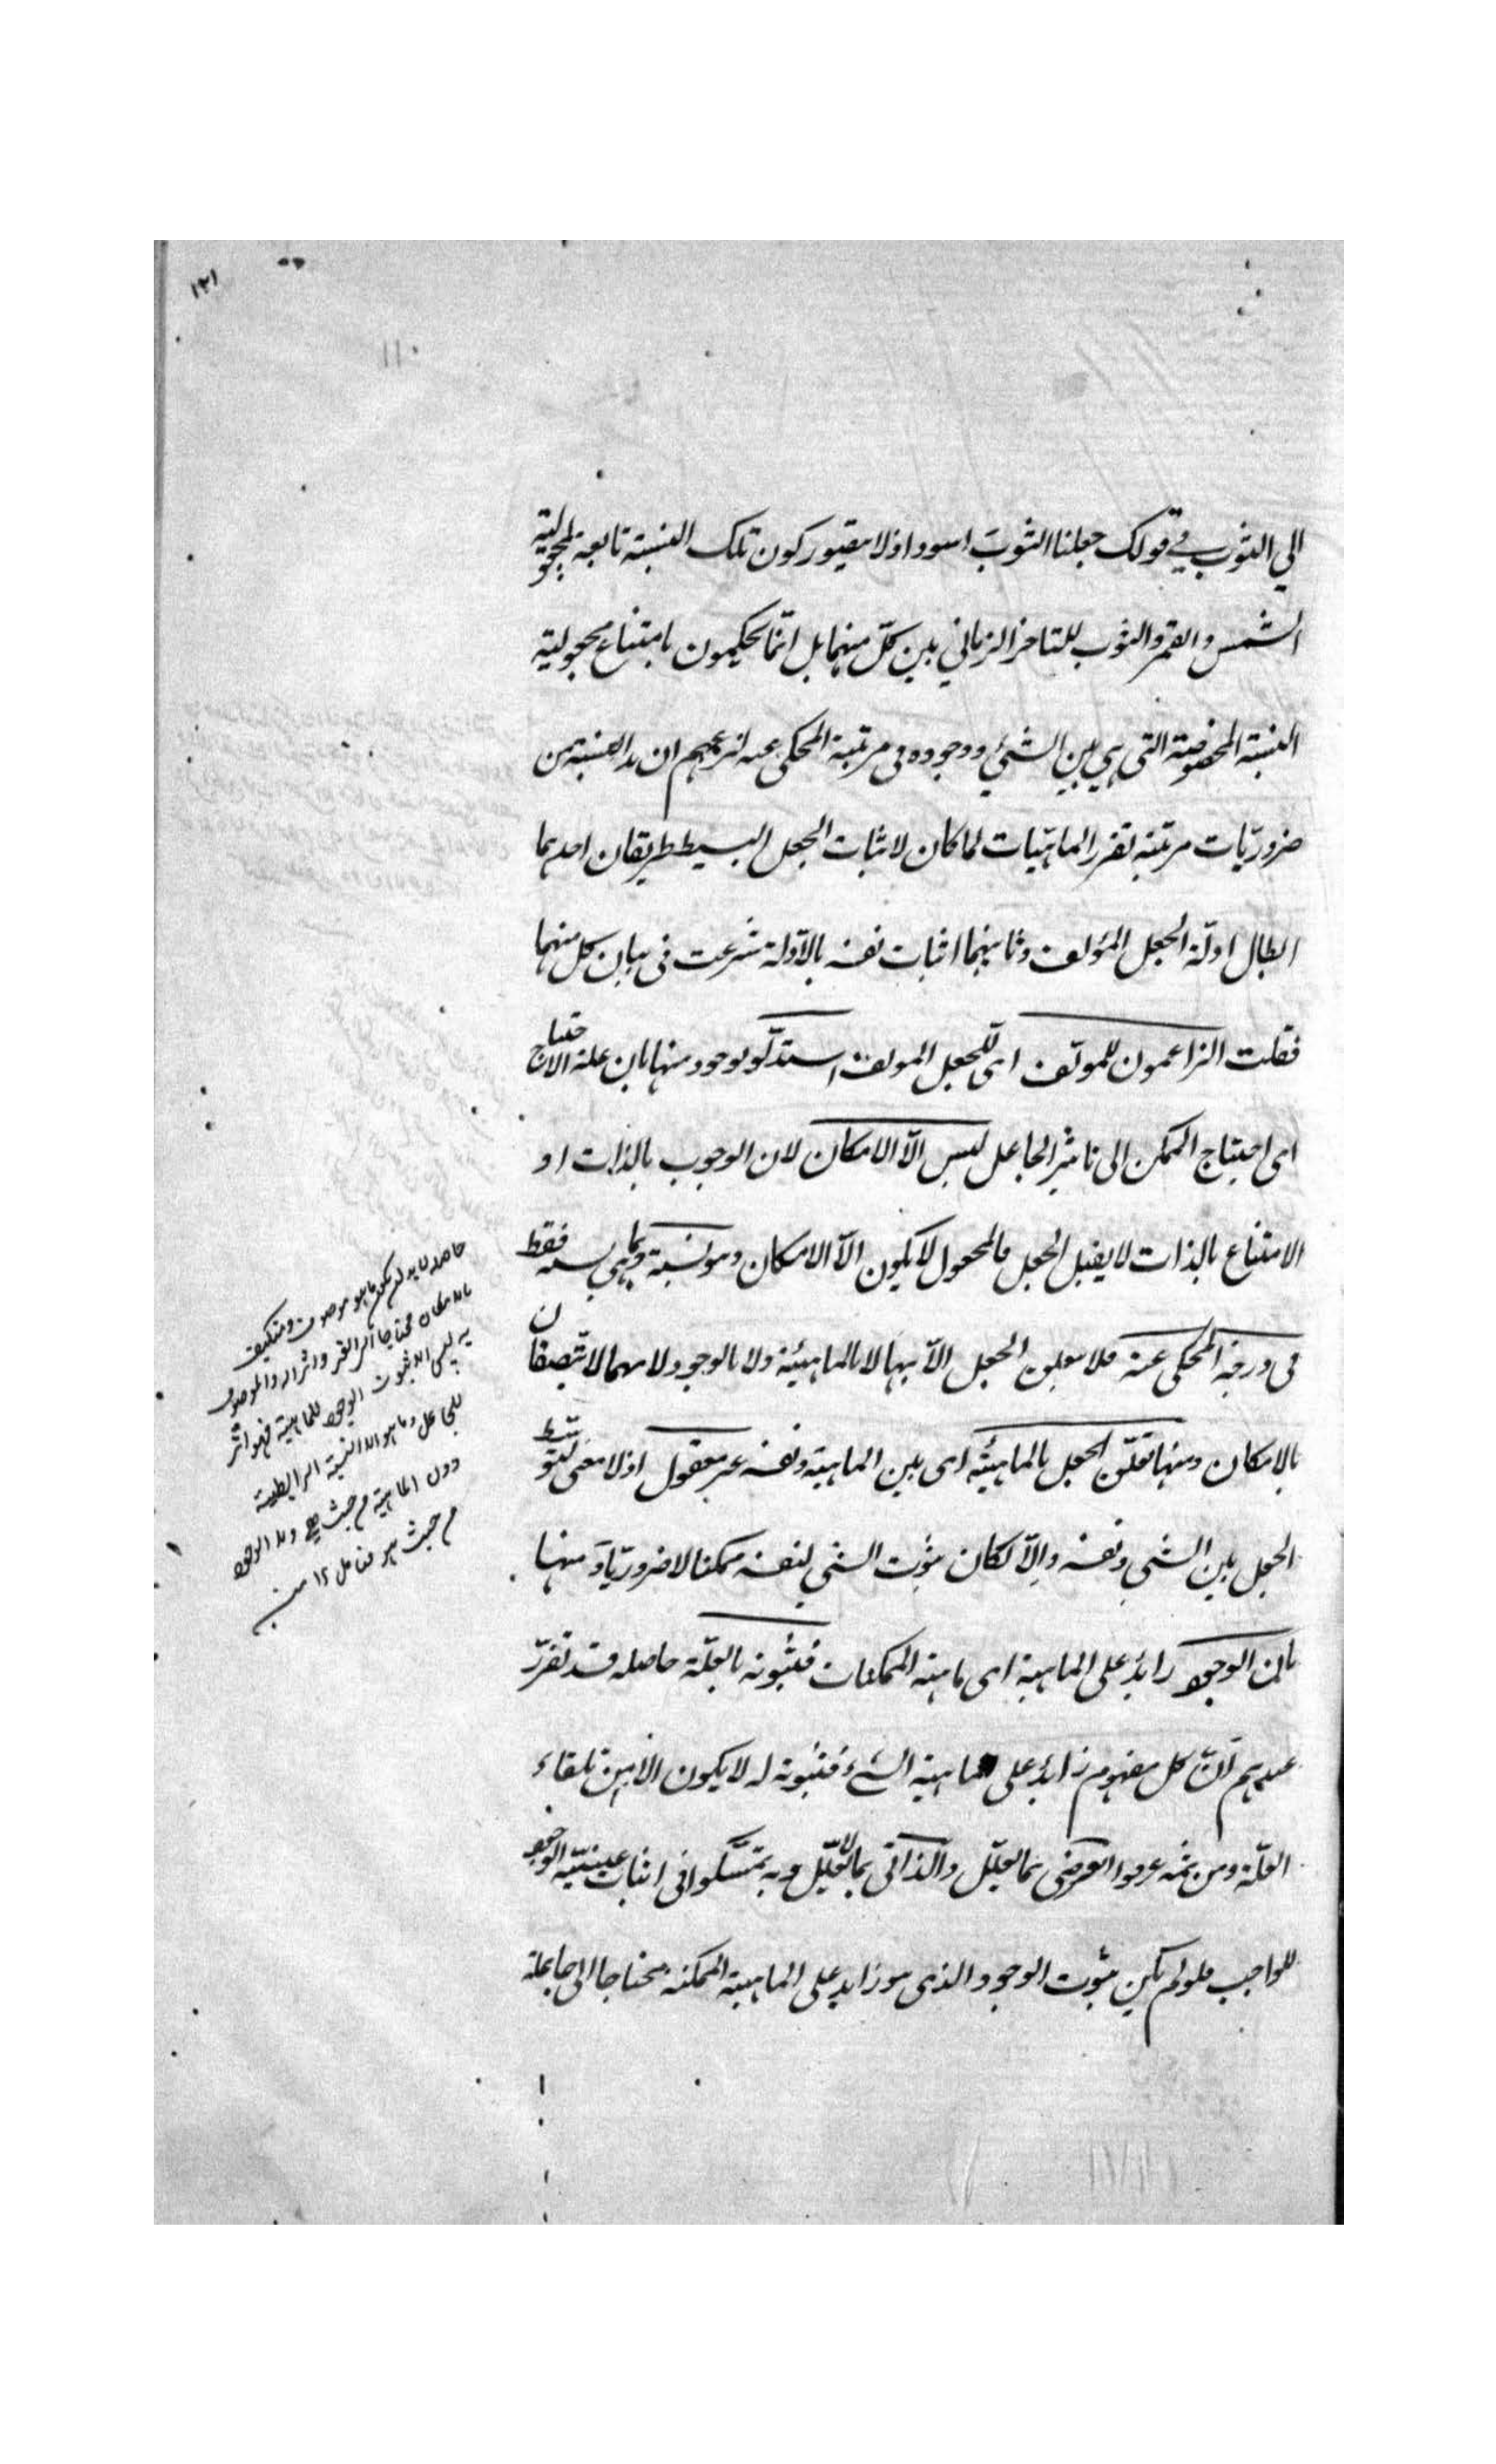 ١٢١
الي الثوب في قولك جعلنا الثوبَ اسود اذ لا يتصور كون تلك النسبة تابعة لمجعولية
الشمس والقمر والثوب للتاخر الزماني بين كلّ منهما بل انّما يحكمون بامتناع مجعولية
النسبة المخصوصة التي هي بين الشئ ووجوده في مرتبة المحكي عنه لزعمهم ان هذه النسبة من
ضروريّات مرتبة تقرر الماهيّات لما كان لاثبات الجعل البسيط طريقان احدهما
ابطال ادلّة الجعل المؤلف وثانيهما اثبات نفسه بالادلة شرعت في بيان كل منهما
فقلت الزاعمون للمؤلف اي للجعل المولف استدلّو بوجوه منها بان علة الاحتياج
اي احتياج الممكن الى تاثير الجاعل ليس الّا الامكان لان الوجوب بالذات او
الامتناع بالذات لا يقبل الجعل فالمجعول لا يكون الّا الامكان وهو نسبة وبما هي نسبة فقط
في درجة المحكي عنه فلا يتعلق الجعل الّا بها لا بالماهيئة ولا بالوجود ولا بهما لاتّصافا
ن
بالامكان ومنها تعلّق الجعل بالماهيئة اي بين الماهية ونفسه غير معقول اذ لا معنى لتوسّط
الجعل بين الشئ ونفسه والّا لكان ثبوت الشئ لنفسه ممكنا لا ضروريّا وَ منها
بان الوجود زايد على الماهية اي ماهية الممكنات فثبوته بالعلّة حاصله قد تقرّر
عندهم انّ كل مفهوم زايد على ماهية الشئ فثبوته له لا يكون الا من تلقاء
العلّة ومن ثمه عرفوا العرضي بما يعلّل والذاتي بما لا يعلّل وبه تمسّكوا في اثبات عينيّة الوجود
للواجب فلو لم يكن ثبوت الوجود الذي هو زايد على الماهية الممكنة محتاجا الى جاعلة
بالامكان محتاجا الى
ليس الا ثبوت الوجود للماهية فهو اثر
للجاعل وما هو الا النسبة الرابطية
دون الماهية من حيث هي ولا الوجود
من حيث هو فتامل ١٢ منه